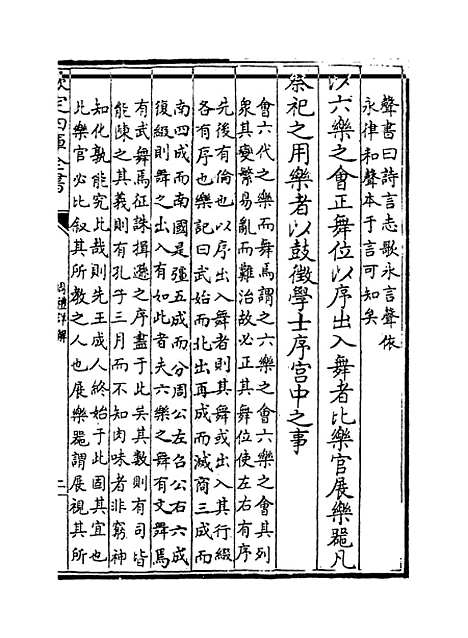 聲書曰詩言志歌永言聲依
永律和聲本于言可知矣
以六樂之會正舞位以序出入舞者比樂官展樂器凡
祭祀之用樂者以鼓徵學士序宫中之事
會六代之樂而舞焉謂之六樂之會六樂之會其列
衆其變繁易亂而難治故必正其舞位使左右有序
先後有倫也以序出入舞者則其舞或出入其行綴
各有序也樂記曰武始而北出再成而滅商三成而
南四成而南國是彊五成而分周公左召公右六成
復綴則舞之出入有如此者夫六樂之舞有文舞焉
有武舞焉征誅揖遜之序盡于此矣其數則有司皆
能陳之其義則有孔子三月而不知肉味者非窮神
知化孰能究此哉則先王成人終始于此固其宜也
此樂官必比叙其所教之人也展樂器謂展視其所
欽定四庫全書
周禮詳解
二